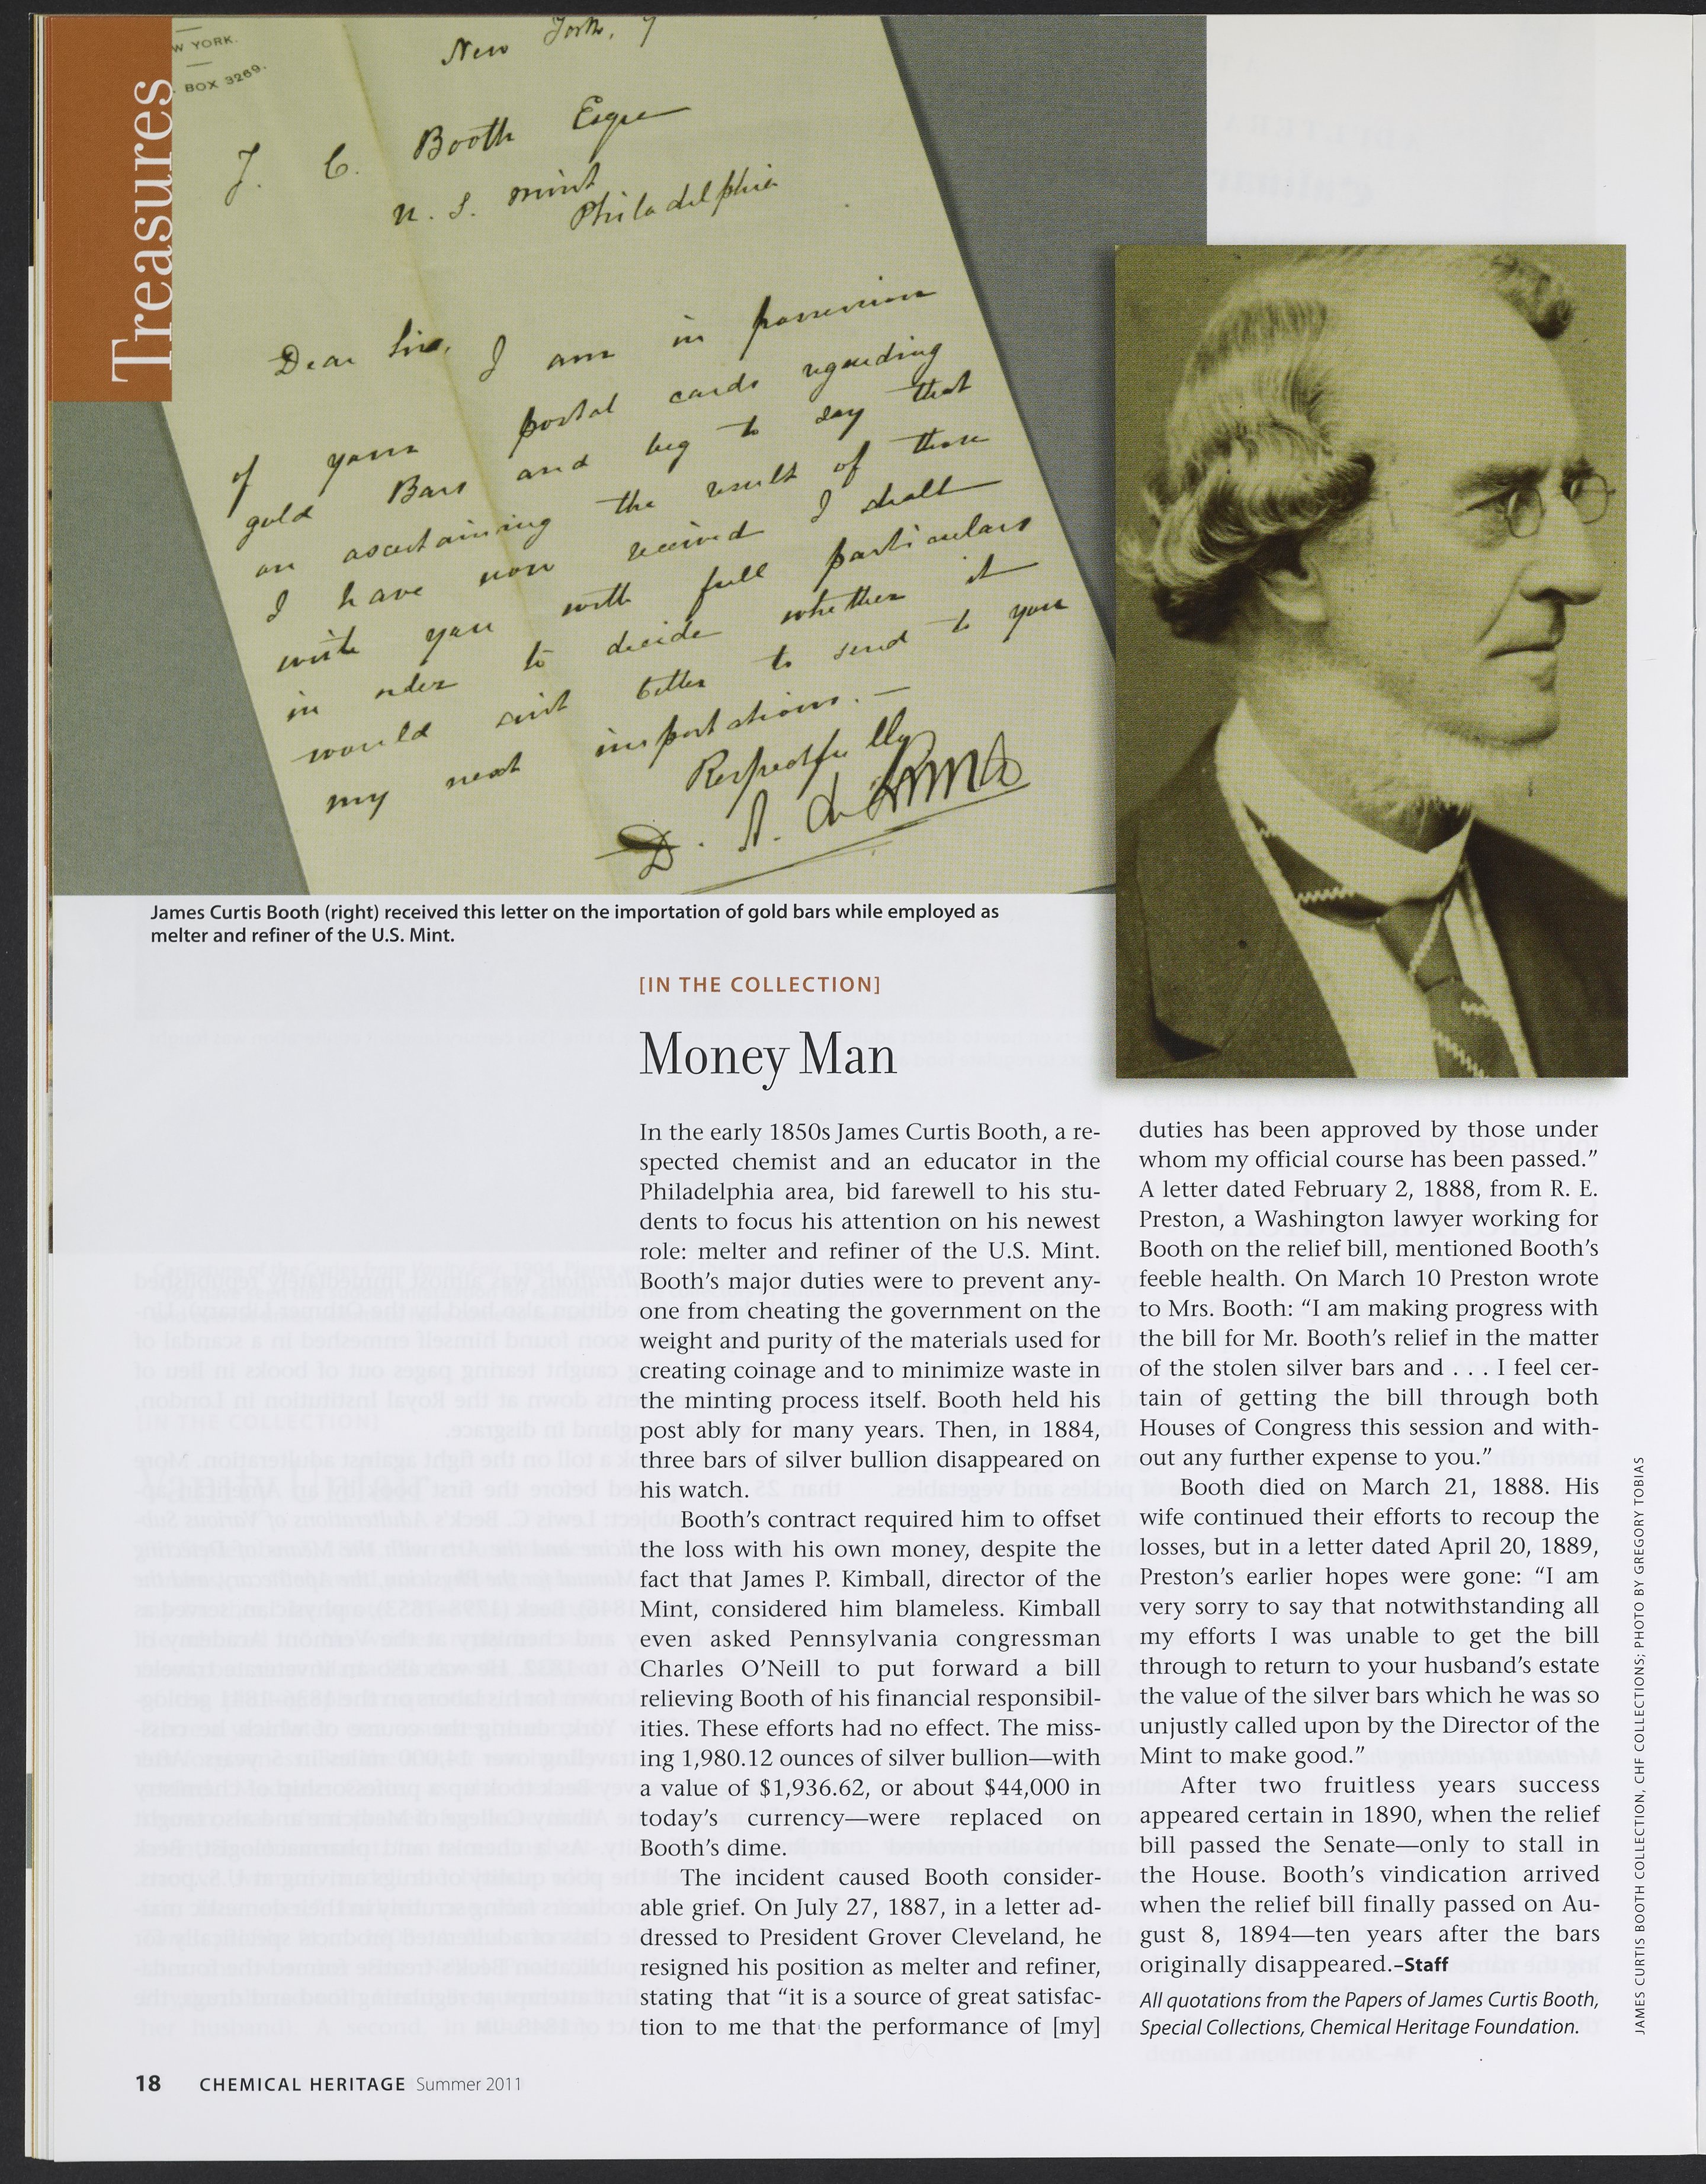 Treasures
W YORK.
BOX 3269.
New York, 9
J. C. Booth Esqre
U. S. mint
Philadelphia
Dear Sir, I am in possession
of yours postal cards regarding
gold Bars and beg to say that
on ascertaining the result of those
I have now received I shall
write you with full particulars
in order to decide whether it
would suit better to send to you
my next importations. —
Respectfully
James Curtis Booth (right) received this letter on the importation of gold bars while employed as
melter and refiner of the U.S. Mint.
[IN THE COLLECTION]
Money Man
In the early 1850s James Curtis Booth, a re-
spected chemist and an educator in the
Philadelphia area, bid farewell to his stu-
dents to focus his attention on his newest
role: melter and refiner of the U.S. Mint.
Booth's major duties were to prevent any-
one from cheating the government on the
weight and purity of the materials used for
creating coinage and to minimize waste in
the minting process itself. Booth held his
post ably for many years. Then, in 1884,
three bars of silver bullion disappeared on
his watch.
Booth's contract required him to offset
the loss with his own money, despite the
fact that James P. Kimball, director of the
Mint, considered him blameless. Kimball
even asked Pennsylvania congressman
Charles O'Neill to put forward a bill
relieving Booth of his financial responsibil-
ities. These efforts had no effect. The miss-
ing 1,980.12 ounces of silver bullion—with
a value of $1,936.62, or about $44,000 in
today's currency—were replaced on
Booth's dime.
The incident caused Booth consider-
able grief. On July 27, 1887, in a letter ad-
dressed to President Grover Cleveland, he
resigned his position as melter and refiner,
stating that "it is a source of great satisfac-
tion to me that the performance of [my]
duties has been approved by those under
whom my official course has been passed."
A letter dated February 2, 1888, from R. E.
Preston, a Washington lawyer working for
Booth on the relief bill, mentioned Booth's
feeble health. On March 10 Preston wrote
to Mrs. Booth: "I am making progress with
the bill for Mr. Booth's relief in the matter
of the stolen silver bars and . . . I feel cer-
tain of getting the bill through both
Houses of Congress this session and with-
out any further expense to you."
Booth died on March 21, 1888. His
wife continued their efforts to recoup the
losses, but in a letter dated April 20, 1889,
Preston's earlier hopes were gone: "I am
very sorry to say that notwithstanding all
my efforts I was unable to get the bill
through to return to your husband's estate
the value of the silver bars which he was so
unjustly called upon by the Director of the
Mint to make good."
After two fruitless years success
appeared certain in 1890, when the relief
bill passed the Senate—only to stall in
the House. Booth's vindication arrived
when the relief bill finally passed on Au-
gust 8, 1894—ten years after the bars
originally disappeared.–Staff
All quotations from the Papers of James Curtis Booth,
Special Collections, Chemical Heritage Foundation.
JAMES CURTIS BOOTH COLLECTION, CHF COLLECTIONS; PHOTO BY GREGORY TOBIAS
18 CHEMICAL HERITAGE Summer 2011